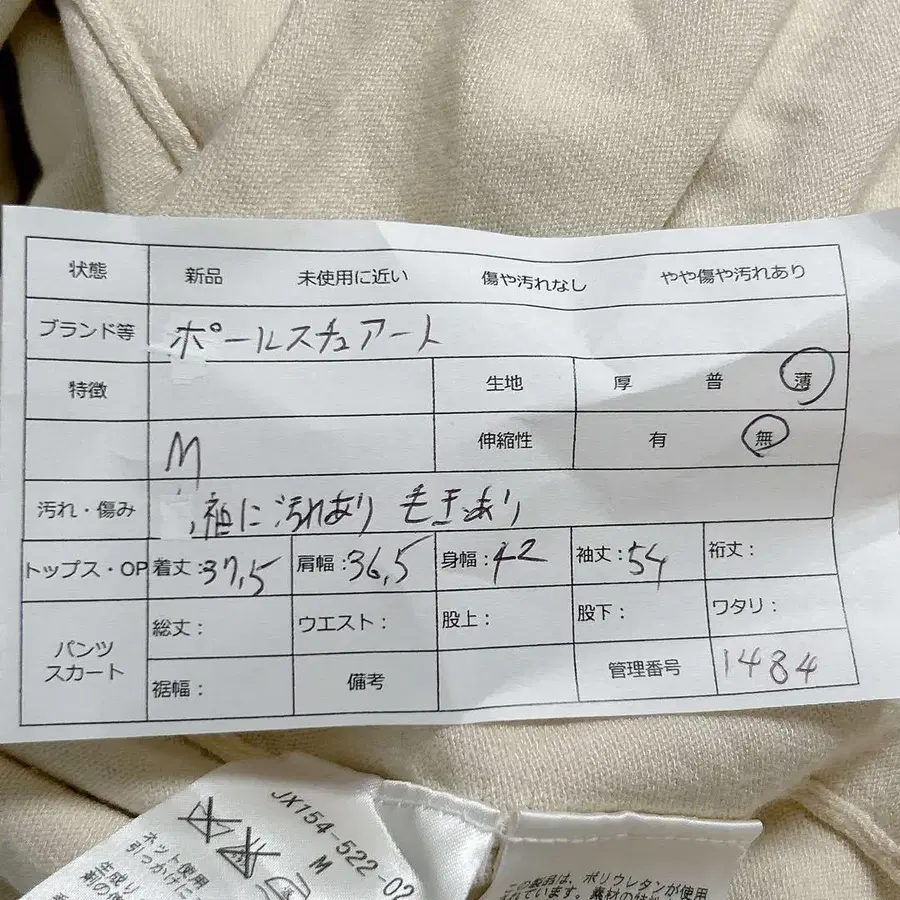 状態 新品 未使用に近い 傷や汚れなし やや傷や汚れあり
ブランド等 ポールスチュアート
特徴 生地 厚 普 薄
M 伸縮性 有 無
汚れ・傷み 袖に汚れあり 毛玉あり
トップス・OP 着丈:37,5 肩幅:36,5 身幅:42 袖丈:54 裄丈:
パンツ スカート 総丈: ウエスト: 股上: 股下: ワタリ:
裾幅: 備考 管理番号 1484
JX154-522-02
M
ネット使用
引っかけに
生成り
剤の使
この製品は、ポリウレタンが使用
れています。素材の特性